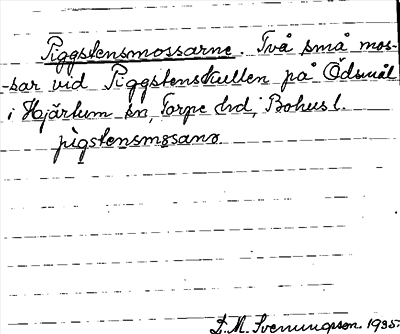 Piggstensmossarne. Två små mos-
-sar vid Piggstenskullen på Ödsmål
i Hjärtum sn, Torpe hd, Bohusl.
pigstensmosana.
D. M. Svenungsson 1935.